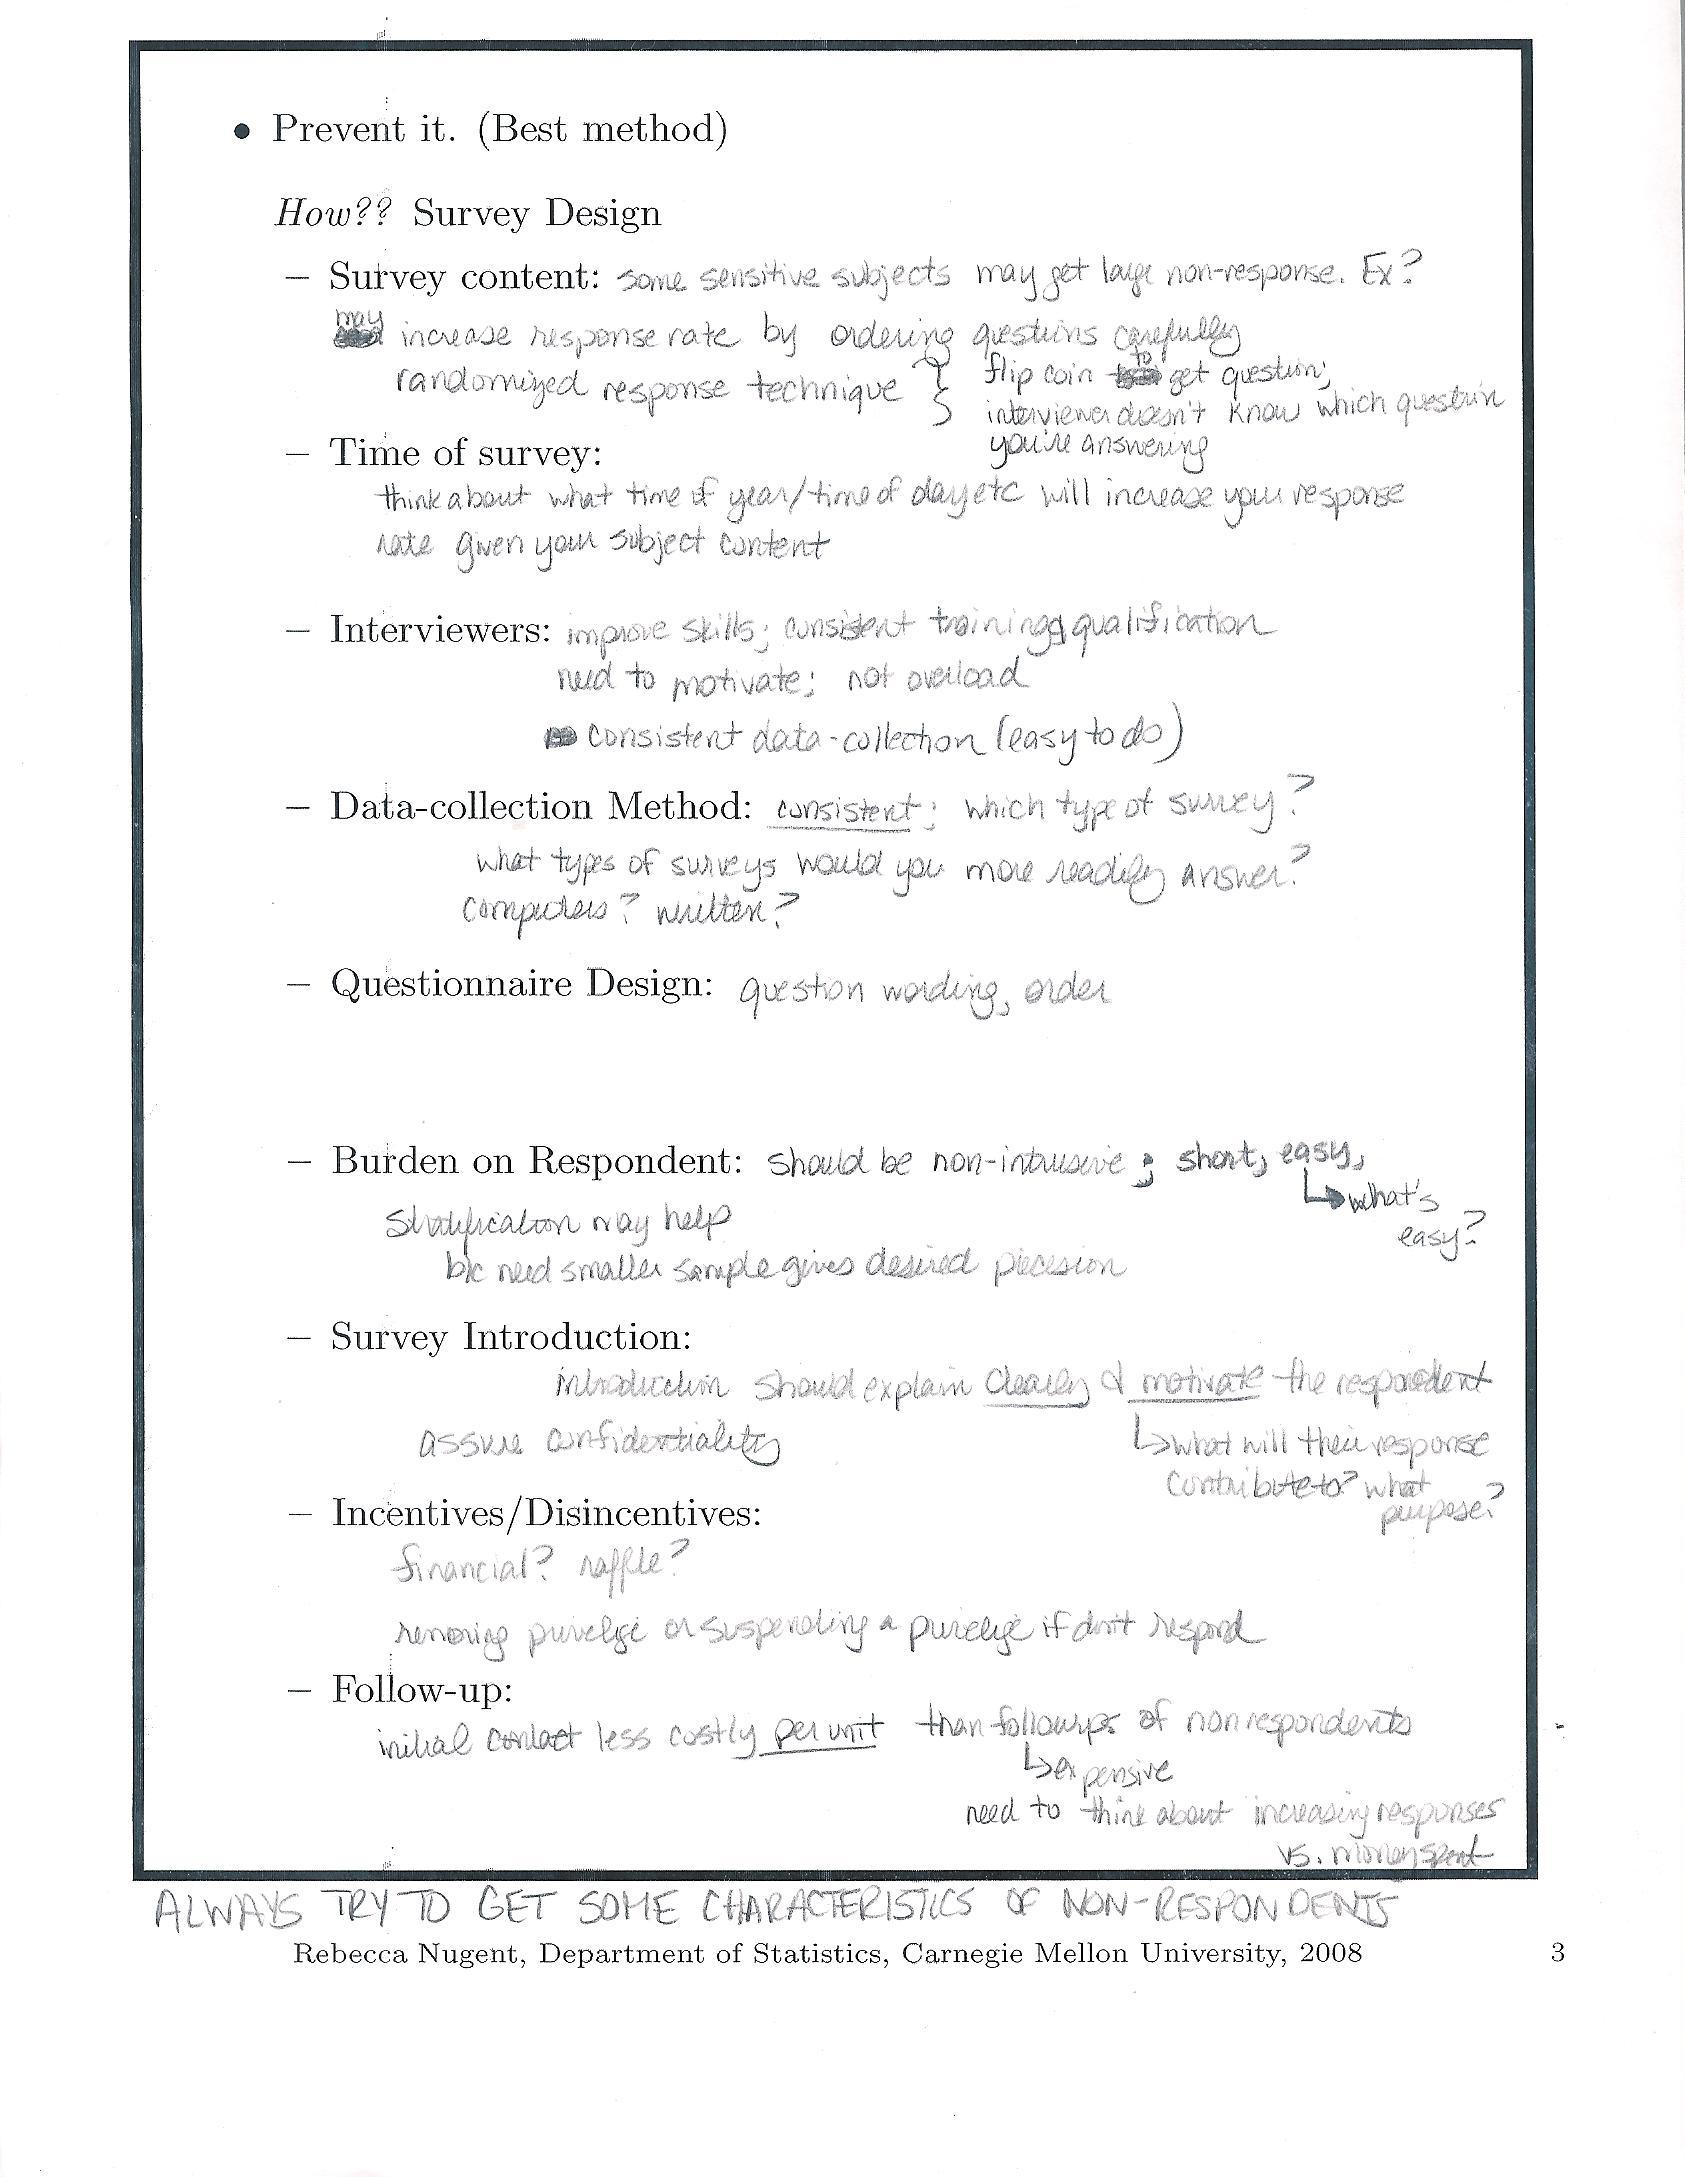 • Prevent it. (Best method)
How?? Survey Design
– Survey content: some sensitive subjects may get large non-response. Ex?
may increase response rate by ordering questions carefully
randomized response technique } flip coin to get question;
interviewer doesn't know which question
you're answering
– Time of survey:
think about what time of year/time of day etc will increase your response
rate given your subject content
– Interviewers: improve skills; consistent training, qualification
need to motivate; not overload
consistent data-collection (easy to do)
– Data-collection Method: consistent; which type of survey?
what types of surveys would you more readily answer?
computers? written?
– Questionnaire Design: question wording, order
– Burden on Respondent: should be non-intrusive; short, easy,
↳ what's
easy?
stratification may help
b/c need smaller sample gives desired precision
– Survey Introduction:
introduction should explain clearly & motivate the respondent
assure confidentiality ↳ what will their response
contribute to? what
purpose?
– Incentives/Disincentives:
financial? raffle?
removing privelige or suspending a privelige if don't respond
– Follow-up:
initial contact less costly per unit than followups of nonrespondents
↳ expensive
need to think about increasing responses
vs. money spent
ALWAYS TRY TO GET SOME CHARACTERISTICS OF NON-RESPONDENTS
Rebecca Nugent, Department of Statistics, Carnegie Mellon University, 2008 3